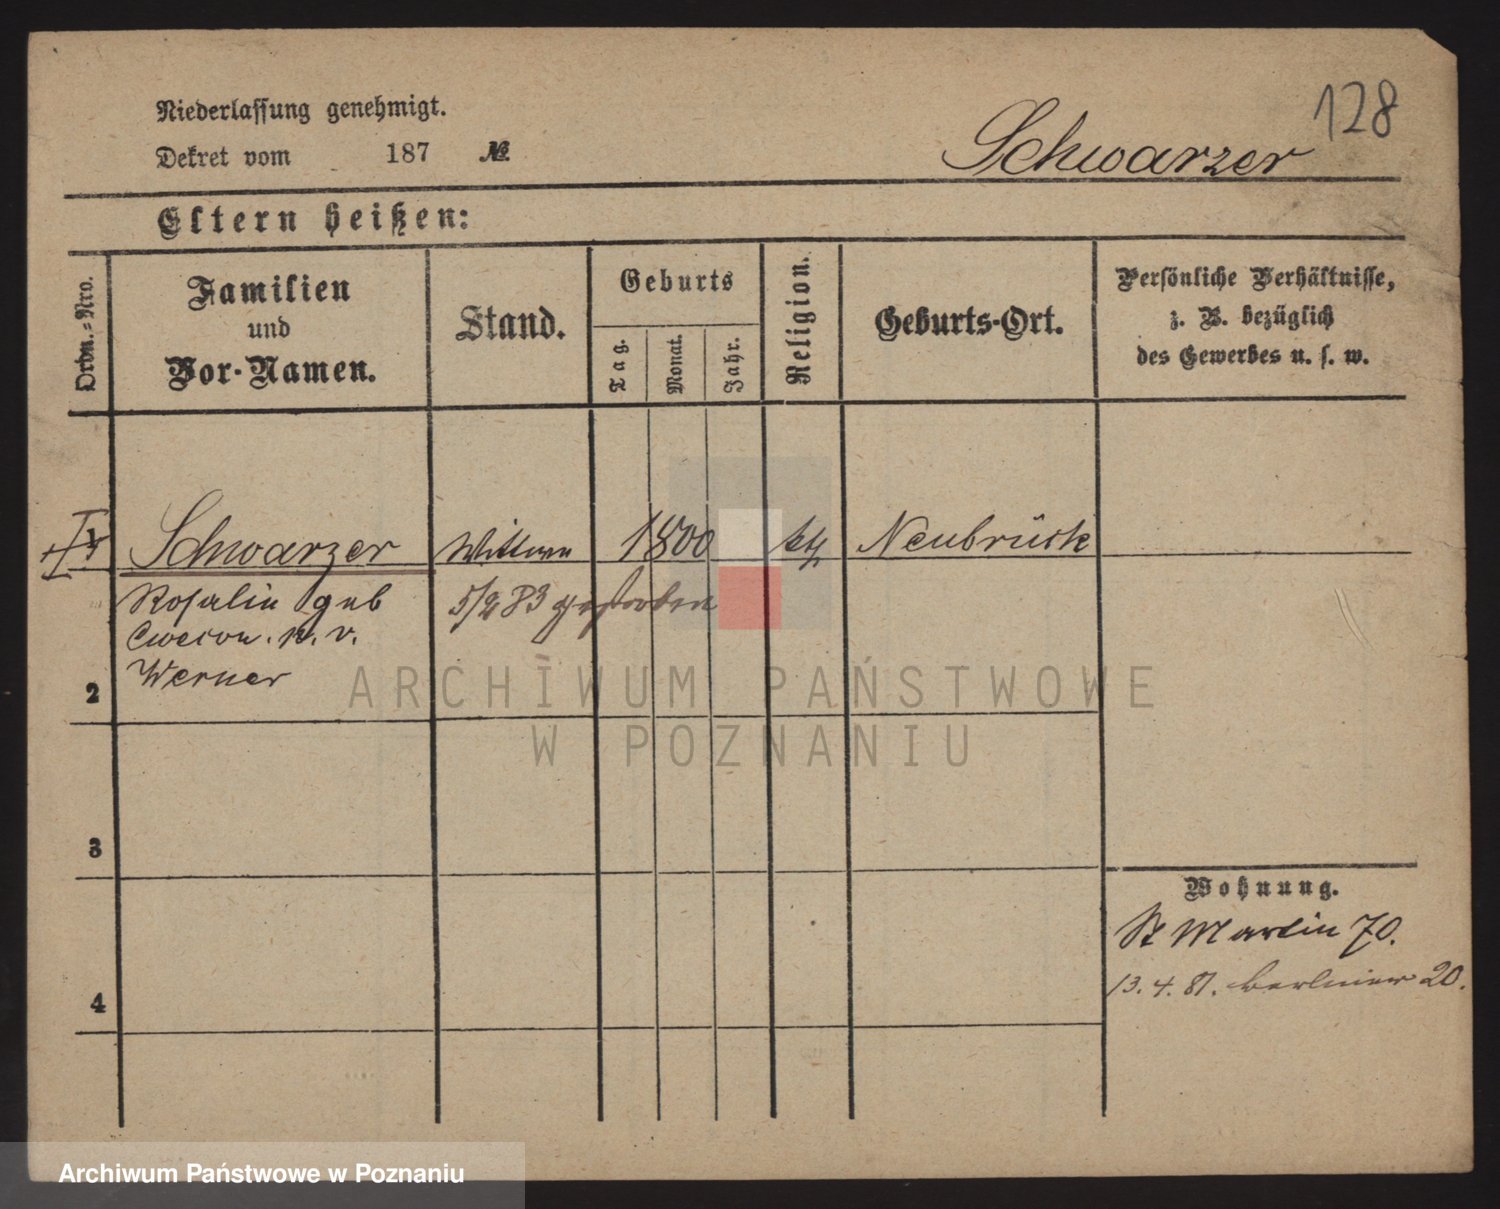 128
Niederlassung genehmigt.
Dekret vom 187 №
Schwarzer
Eltern heißen:
Ordn.-Nro.
Familien
und
Vor-Namen.
Stand.
Geburts
Tag.
Monat.
Jahr.
Religion.
Geburts-Ort.
Persönliche Verhältnisse,
z. B. bezüglich
des Gewerbes u. s. w.
Schwarzer Wittwe 1800 kth Neubrück
Rosalie geb 5/2 83 gestorben
v.
Werner
2
3
4
Wohnung.
St Martin 70.
13. 4. 81. Berliner 20.
ARCHIWUM PAŃSTWOWE
W POZNANIU
Archiwum Państwowe w Poznaniu